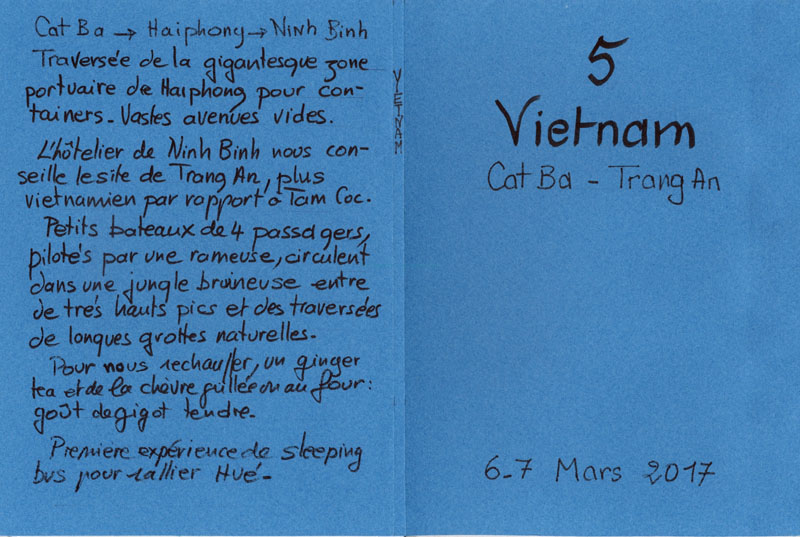 Cat Ba → Haiphong → Ninh Binh
Traversée de la gigantesque zone
portuaire de Haiphong pour con-
tainers. Vastes avenues vides.
L'hôtelier de Ninh Binh nous con-
seille le site de Trang An, plus
vietnamien par rapport à Tam Coc.
Petits bateaux de 4 passagers,
pilotés par une rameuse, circulent
dans une jungle bruineuse entre
de très hauts pics et des traversées
de longues grottes naturelles.
Pour nous rechauffer, un ginger
tea et de la chèvre grillée ou au four :
goût de gigot tendre.
Première expérience de sleeping
bus pour rallier Hué.
VIETNAM
5
Vietnam
Cat Ba - Trang An
6-7 Mars 2017